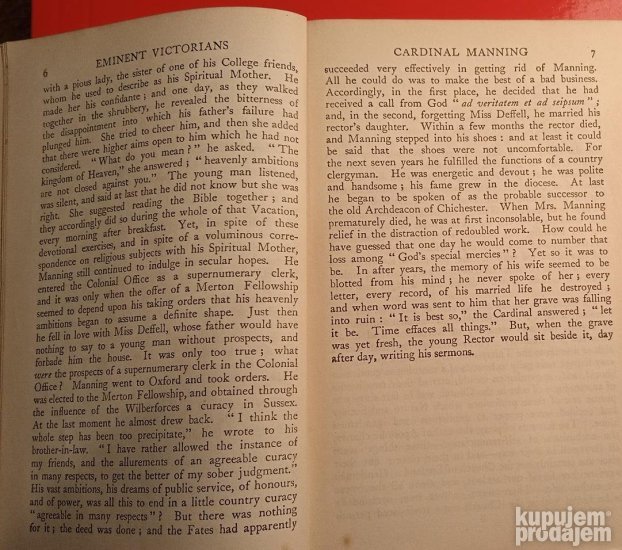 6 EMINENT VICTORIANS
with a pious lady, the sister of one of his College friends,
whom he used to describe as his Spiritual Mother. He
made her his confidante ; and one day, as they walked
together in the shrubbery, he revealed the bitterness of
the disappointment into which his father's failure had
plunged him. She tried to cheer him, and then she added
that there were higher aims open to him which he had not
considered. "What do you mean ?" he asked. "The
kingdom of Heaven," she answered ; "heavenly ambitions
are not closed against you." The young man listened,
was silent, and said at last that he did not know but she was
right. She suggested reading the Bible together ; and
they accordingly did so during the whole of that Vacation,
every morning after breakfast. Yet, in spite of these
devotional exercises, and in spite of a voluminous corre-
spondence on religious subjects with his Spiritual Mother,
Manning still continued to indulge in secular hopes. He
entered the Colonial Office as a supernumerary clerk,
and it was only when the offer of a Merton Fellowship
seemed to depend upon his taking orders that his heavenly
ambitions began to assume a definite shape. Just then
he fell in love with Miss Deffell, whose father would have
nothing to say to a young man without prospects, and
forbade him the house. It was only too true ; what
were the prospects of a supernumerary clerk in the Colonial
Office ? Manning went to Oxford and took orders. He
was elected to the Merton Fellowship, and obtained through
the influence of the Wilberforces a curacy in Sussex.
At the last moment he almost drew back. "I think the
whole step has been too precipitate," he wrote to his
brother-in-law. "I have rather allowed the instance of
my friends, and the allurements of an agreeable curacy
in many respects, to get the better of my sober judgment."
His vast ambitions, his dreams of public service, of honours,
and of power, was all this to end in a little country curacy
"agreeable in many respects" ? But there was nothing
for it ; the deed was done ; and the Fates had apparently
CARDINAL MANNING 7
succeeded very effectively in getting rid of Manning.
All he could do was to make the best of a bad business.
Accordingly, in the first place, he decided that he had
received a call from God "ad veritatem et ad seipsum" ;
and, in the second, forgetting Miss Deffell, he married his
rector's daughter. Within a few months the rector died,
and Manning stepped into his shoes : and at least it could
be said that the shoes were not uncomfortable. For
the next seven years he fulfilled the functions of a country
clergyman. He was energetic and devout ; he was polite
and handsome ; his fame grew in the diocese. At last
he began to be spoken of as the probable successor to
the old Archdeacon of Chichester. When Mrs. Manning
prematurely died, he was at first inconsolable, but he found
relief in the distraction of redoubled work. How could he
have guessed that one day he would come to number that
loss among "God's special mercies" ? Yet so it was to
be. In after years, the memory of his wife seemed to be
blotted from his mind ; he never spoke of her ; every
letter, every record, of his married life he destroyed ;
and when word was sent to him that her grave was falling
into ruin : "It is best so," the Cardinal answered ; "let
it be. Time effaces all things." But, when the grave
was yet fresh, the young Rector would sit beside it, day
after day, writing his sermons.
kupujem
prodajem